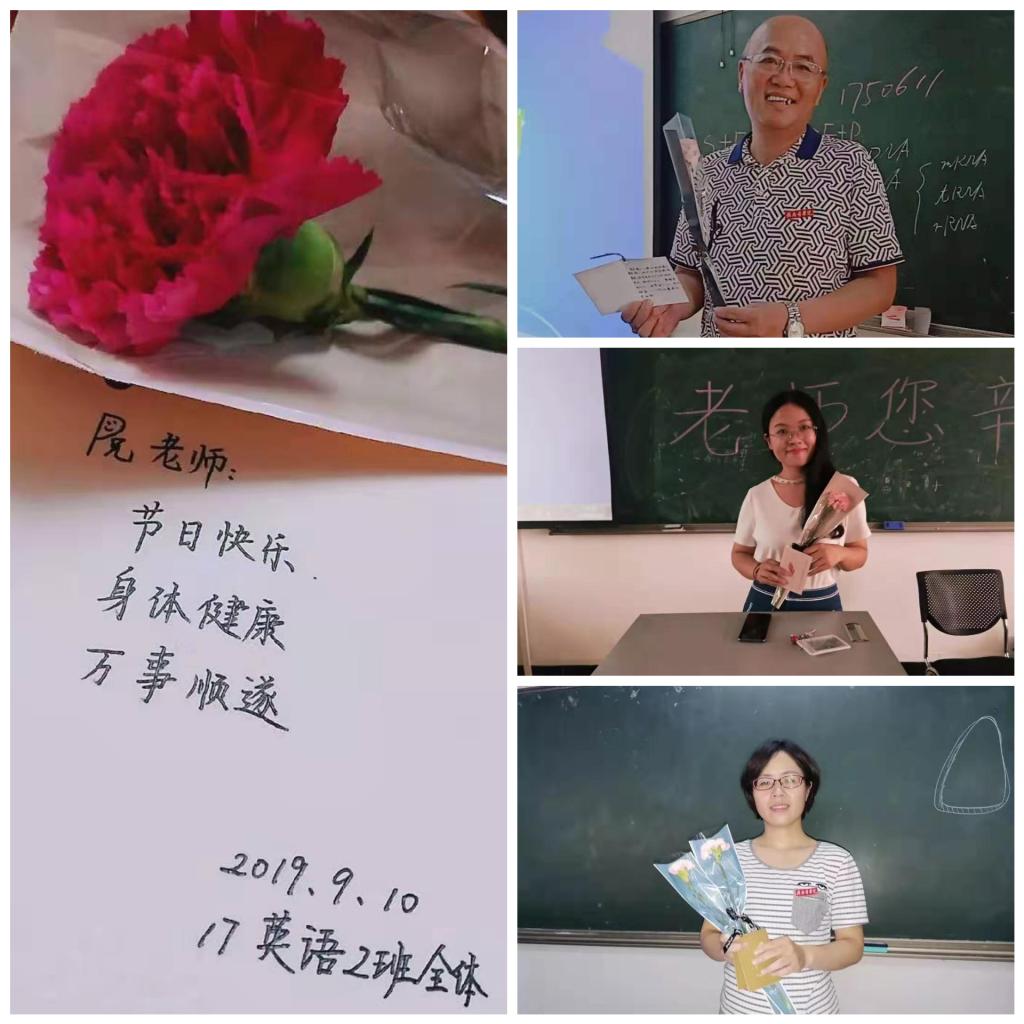 老师:
节日快乐
身体健康
万事顺遂
2019.9.10
17英语2班全体
1750611
E+P
mRNA
tRNA
rRNA
老师您辛